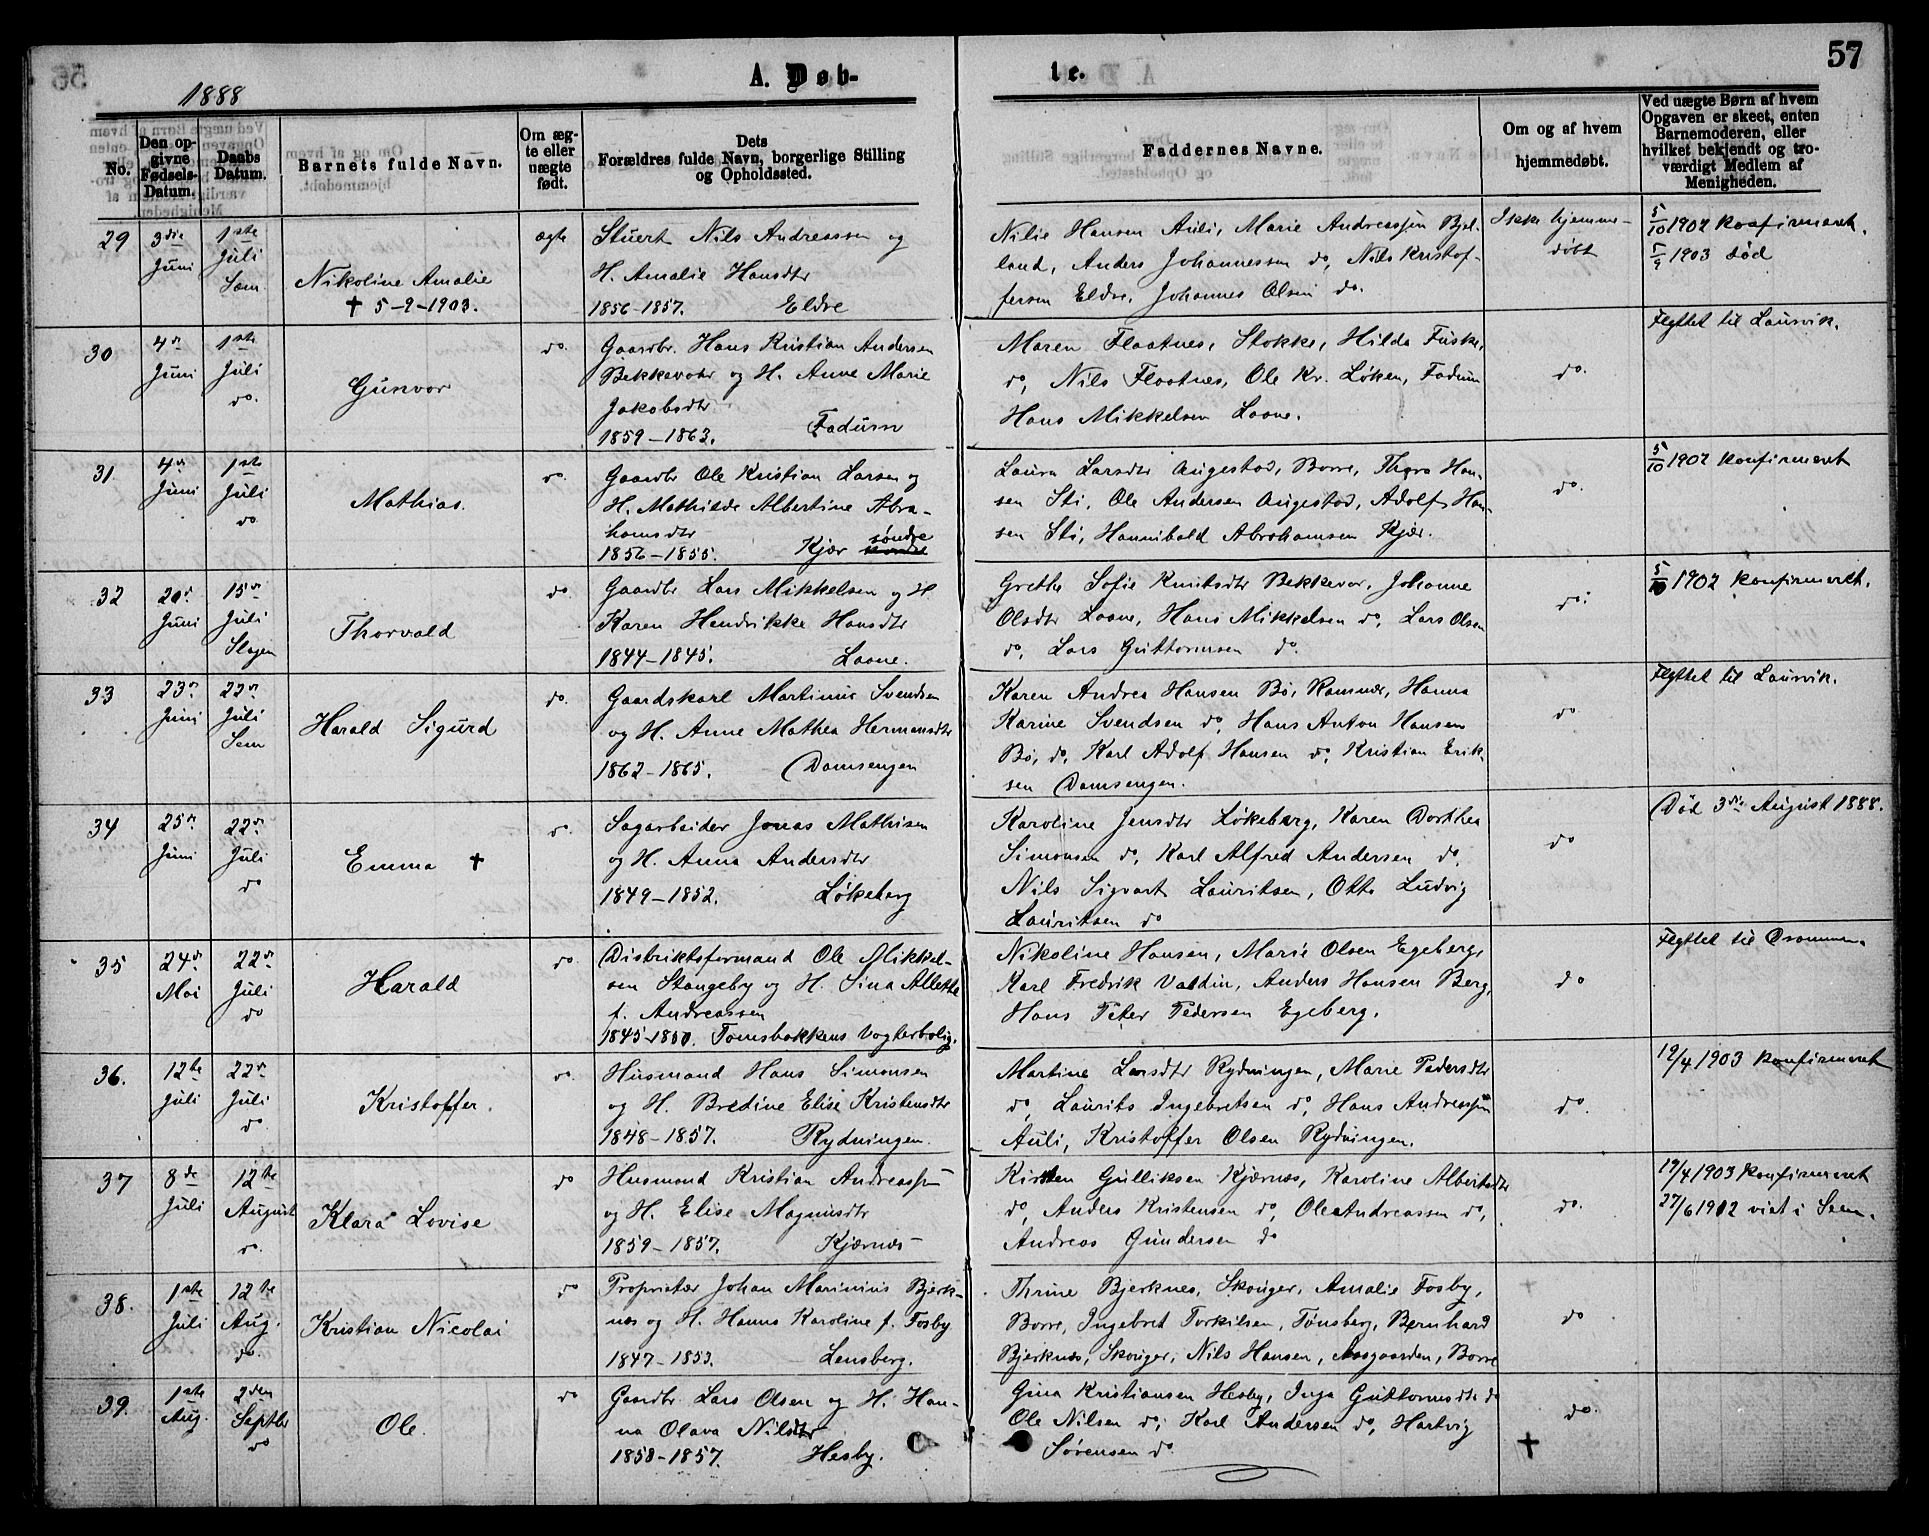 57
1888
A. Døb-
te.
No.
Den op-
givne
Fødsels-
Datum.
Daabs
Datum.
Barnets fulde Navn.
Om æg-
te eller
uægte
født.
Dets
Forældres fulde Navn, borgerlige Stilling
og Opholdssted.
Faddernes Navne.
Om og af hvem
hjemmedøbt.
Ved uægte Børn af hvem
Opgaven er skeet, enten
Barnemoderen, eller
hvilket bekjendt og tro-
værdigt Medlem af
Menigheden.
29
3die
Juni
1ste
Juli
Sem
Nikoline Amalie
† 5-9-1903.
ægte
Stuert Nils Andreassen og
H. Amalie Hansdtr
1856-1857. Eldre
Nilie Hansen Auli, Marie Andreassen Bjel-
land, Anders Johannessen do, Nils Kristof-
fersen Eldre, Johannes Olsen do.
Ikke hjemme-
døbt
5/10 1902 konfirmeret.
5/9 1903 død
30
4de
Juni
1ste
Juli
do.
Gunvor
do.
Gaardbr. Hans Kristian Andersen
Bekkevohr og H. Anne Marie
Jakobsdtr
1859-1863. Fadum
Maren Flaatnes, Stokke, Hilda Fuske,
do, Nils Flaatnes, Ole Kr. Løken, Fadum
Hans Mikkelsen Laane.
do.
Flyttet til Laurvik.
31
4de
Juni
1ste
Juli
do
Mathias.
do.
Gaardbr Ole Kristian Larsen og
H. Mathilde Albertine Abra-
hamsdtr
1856-1855. Kjær søndre
Laura Larsdtr Augestad, Borre, Thora Han-
sen Sti, Ole Andersen Augestad, Adolf Han-
sen Sti, Hannibald Abrahamsen Kjær.
do.
5/10 1902 konfirmeret
32
20de
Juni
15de
Juli
Slagen
Thorvald
do.
Gaardbr Lars Mikkelsen og H
Karen Hendrikke Hansdtr
1844-1845. Laane.
Grethe Sofie Knutsdtr Bekkevar, Johanne
Olsdtr Laane, Hans Mikkelsen do, Lars Olsen
do, Lars Guttormsen do.
do.
5/10 1902 konfirmeret.
33
23de
Juni
22de
Juli
Sem
Harald Sigurd
do.
Gaardskarl Martinius Svendsen
og H. Anne Mathea Hermansdtr
1862-1865. Damsengen
Karen Andrea Hansen Bø, Ramnæs, Hanna
Karine Svendsen do, Hans Anton Hansen
Bø, do, Karl Adolf Hansen do, Kristian Erik-
sen Damsengen.
do
Flyttet til Laurvik.
34
25de
Juni
22de
Juli
do
Emma †
do.
Sagarbeider Jonas Mathisen
og H. Anna Andersdtr
1849-1852. Løkeberg
Karoline Jensdtr Løkeberg, Karen Dorthea
Simonsen do, Karl Alfred Andersen do,
Nils Sigvart Lauritsen, Otto Ludvig
Lauritsen do
do
Død 3die August 1888.
35
24de
Mai
22de
Juli
do
Harald
do.
Distriktsformand Ole Mikkel-
sen Stangeby og H. Sina Allette
f. Andreassen
1845-1850. Tomsbakkens Vogterbolig.
Nikoline Hansen, Marie Olsen Egeberg,
Karl Fredrik Valdin, Anders Hansen Berg,
Hans Peter Pedersen Egeberg.
do
Flyttet til Drammen.
36.
12te
Juli
22de
Juli
do.
Kristoffer.
do.
Husmand Hans Simonsen
og H. Bredine Elise Kristensdtr
1848-1857. Rydningen.
Martine Larsdtr Rydningen, Marie Pedersdtr
do, Laurits Ingebretsen do, Hans Andreassen
Auli, Kristoffer Olsen Rydningen.
do.
19/4 1903 konfirmeret
37
8de
Juli
12te
August
do.
Klara Lovise
do
Husmand Kristian Andreassen
og H. Elise Magnusdtr
1859-1857. Kjærnæs
Kirsten Gulliksen Kjærnæs, Karoline Albertsdtr
do, Anders Kristensen do, Ole Andreassen do,
Andreas Gundersen do
do.
19/4 1903 konfirmeret
27/6 1912 viet i Sem.
38.
1ste
Juli
12te
Aug.
do.
Kristian Nicolai
do
Proprietær Johan Marinius Bjerk-
næs og H. Hanna Karoline f. Fosby
1847-1853. Lensberg.
Thrine Bjerknes, Skouger, Amalie Fosby,
Borre, Ingebret Torkilsen, Tønsberg, Bernhard
Bjerknæs, Skouger, Nils Hansen, Aasgaarden, Borre
do
39.
1ste
Aug.
2den
Septbr
do
Ole.
do
Gaardbr Lars Olsen og H. Han-
na Olava Nilsdtr
1858-1857. Hesby.
Gina Kristiansen Hesby, Inga Guttormsdtr do
Ole Nilsen do, Karl Andersen do, Hartvig
Sørensen do
do.
†